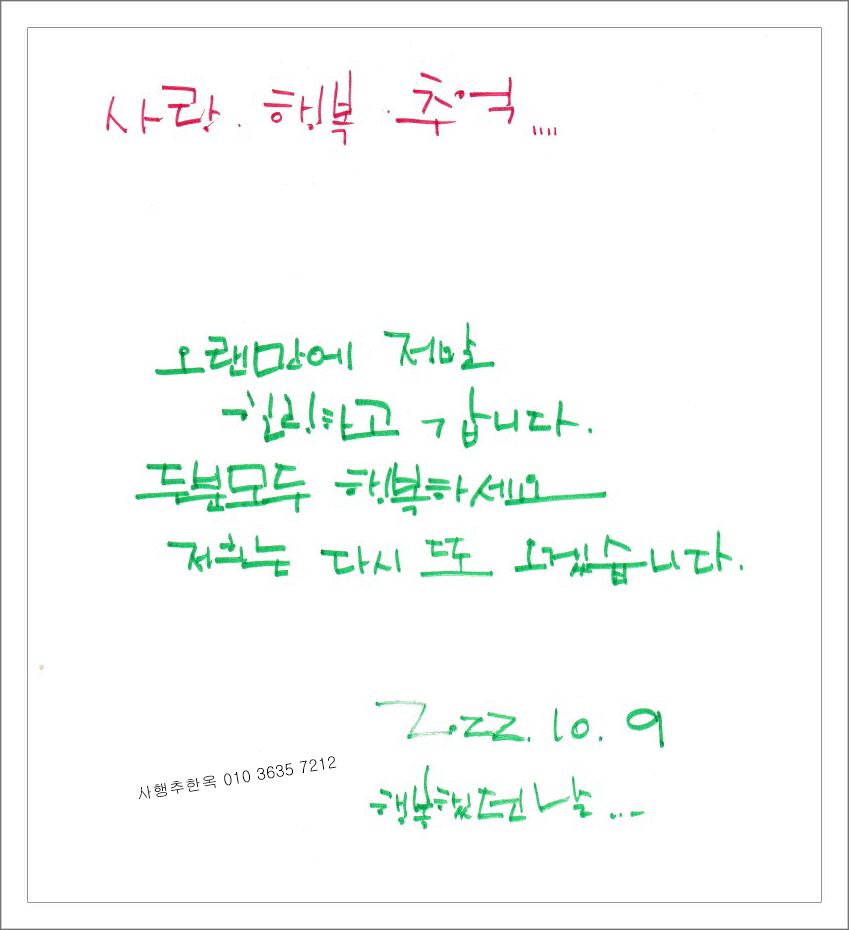 사랑. 행복. 추억....
오랜만에 정말
힐링하고 갑니다.
두분모두 행복하세요
저희는 다시 또 오겠습니다.
2022. 10. 9
사행추한옥 010 3635 7212
행복했던 날...